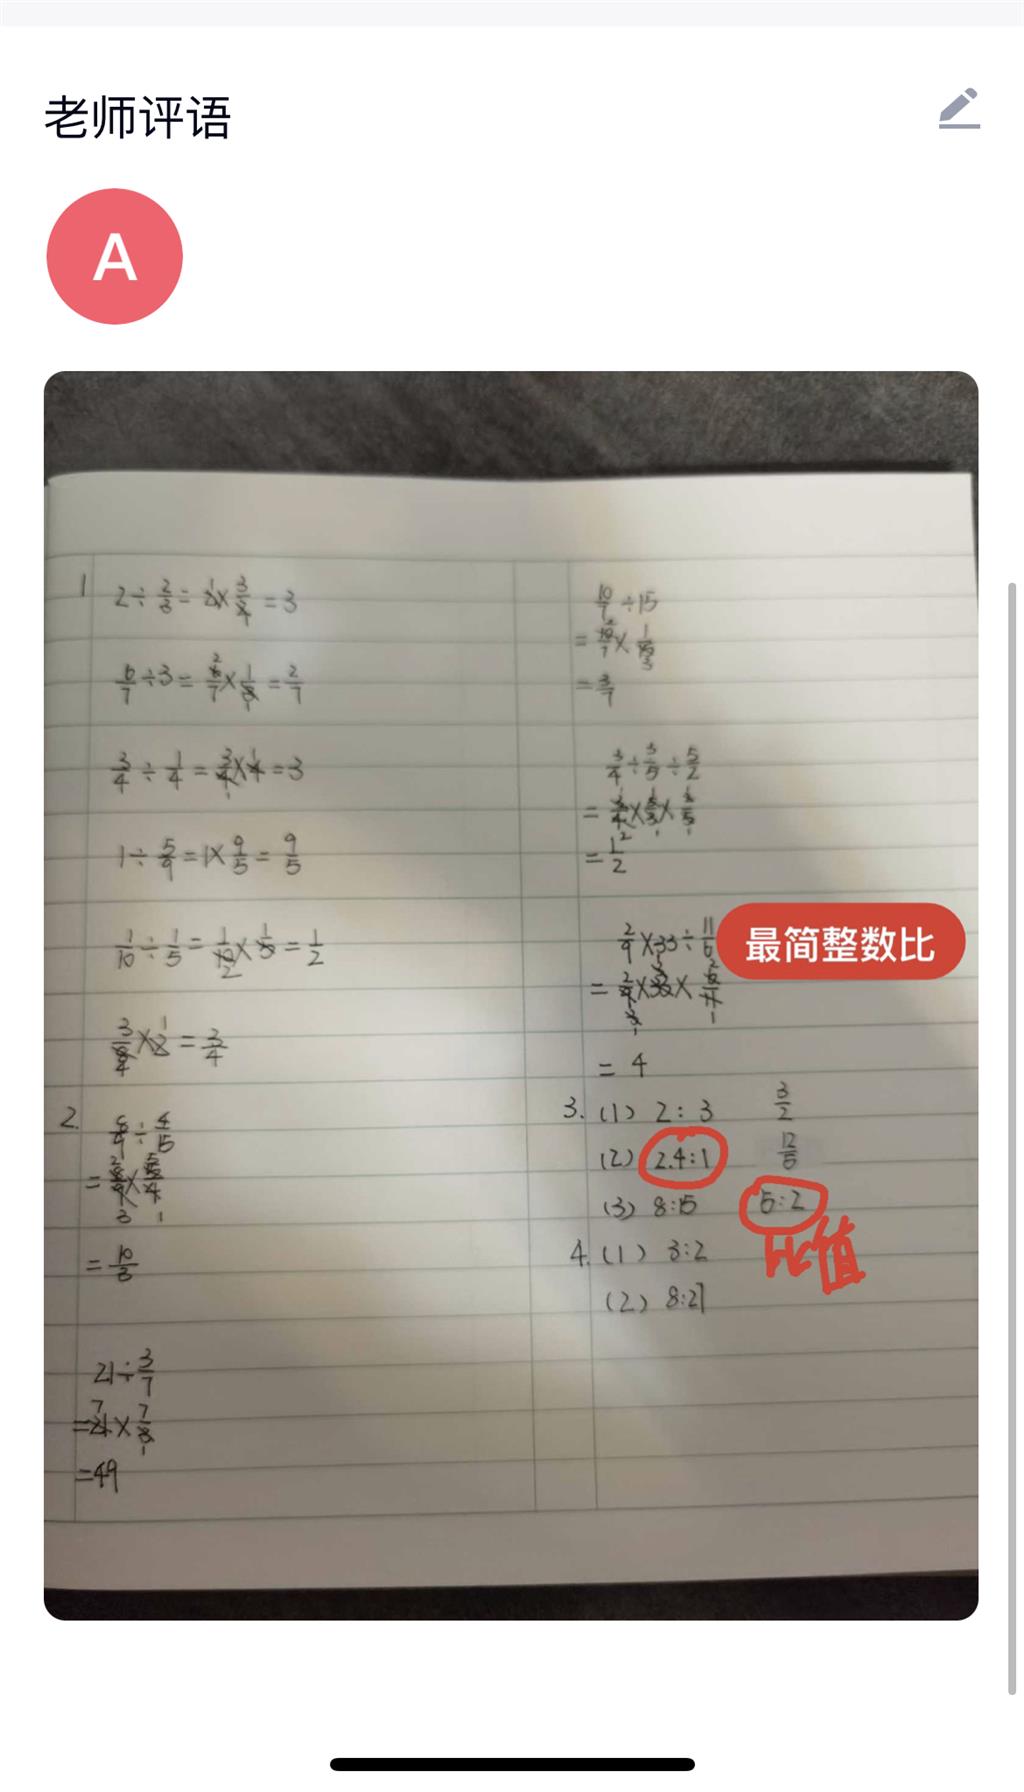 老师评语
A
1
2÷2/3=2×3/2=3
6/7÷3=6/7×1/3=2/7
3/4÷1/4=3/4×4=3
1÷5/9=1×9/5=9/5
1/10÷1/5=1/10×5=1/2
3/8×2=3/4
2.
8/9÷4/15
=8/9×15/4
=10/3
21÷3/7
=21×7/3
=49
10/7÷15
=10/7×1/15
=3/7
3/4÷3/5÷5/2
=3/4×5/3×2/5
=1/2
2/9×33÷11/6
=2/9×33×6/11
=4
最简整数比
3. (1) 2:3 3/2
(2) 2.4:1 12/5
(3) 8:15 5:2
比值
4. (1) 3:2
(2) 8:21